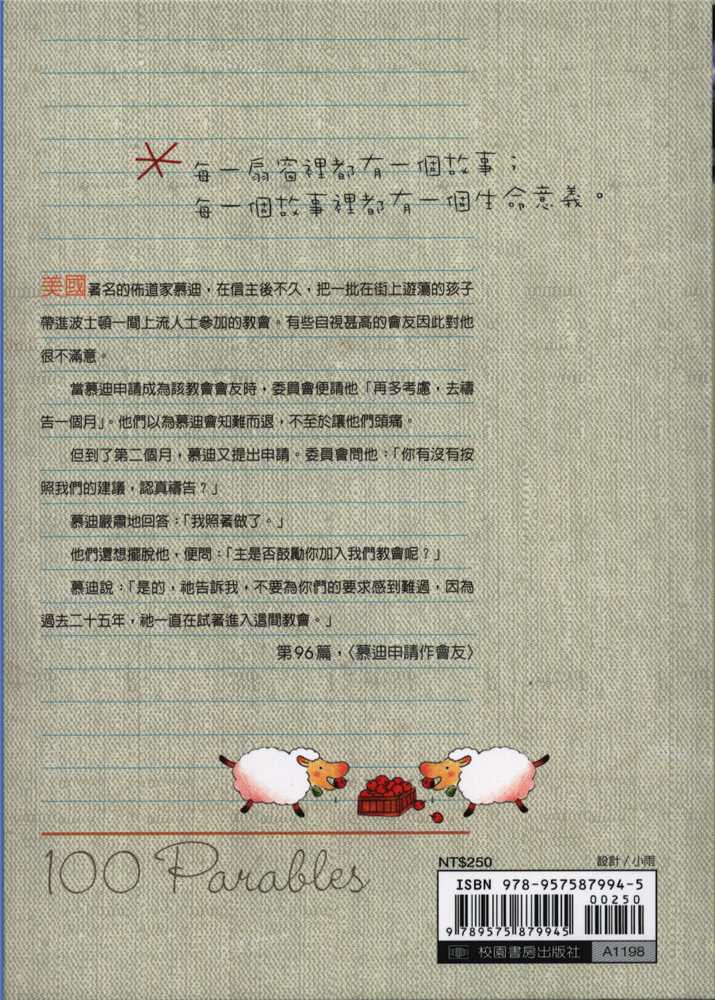 每一扇窗裡都有一個故事；
每一個故事裡都有一個生命意義。
美國著名的佈道家慕迪，在信主後不久，把一批在街上遊蕩的孩子
帶進波士頓一間上流人士參加的教會。有些自視甚高的會友因此對他
很不滿意。
當慕迪申請成為該教會會友時，委員會便請他「再多考慮，去禱
告一個月」。他們以為慕迪會知難而退，不至於讓他們頭痛。
但到了第二個月，慕迪又提出申請。委員會問他：「你有沒有按
照我們的建議，認真禱告？」
慕迪嚴肅地回答：「我照著做了。」
他們還想擺脫他，便問：「主是否鼓勵你加入我們教會呢？」
慕迪說：「是的，祂告訴我，不要為你們的要求感到難過，因為
過去二十五年，祂一直在試著進入這間教會。」
第96篇，〈慕迪申請作會友〉
100 Parables
NT$250
設計 / 小雨
ISBN 978-957587994-5
00250
9 789575 879945
校園書房出版社 A1198